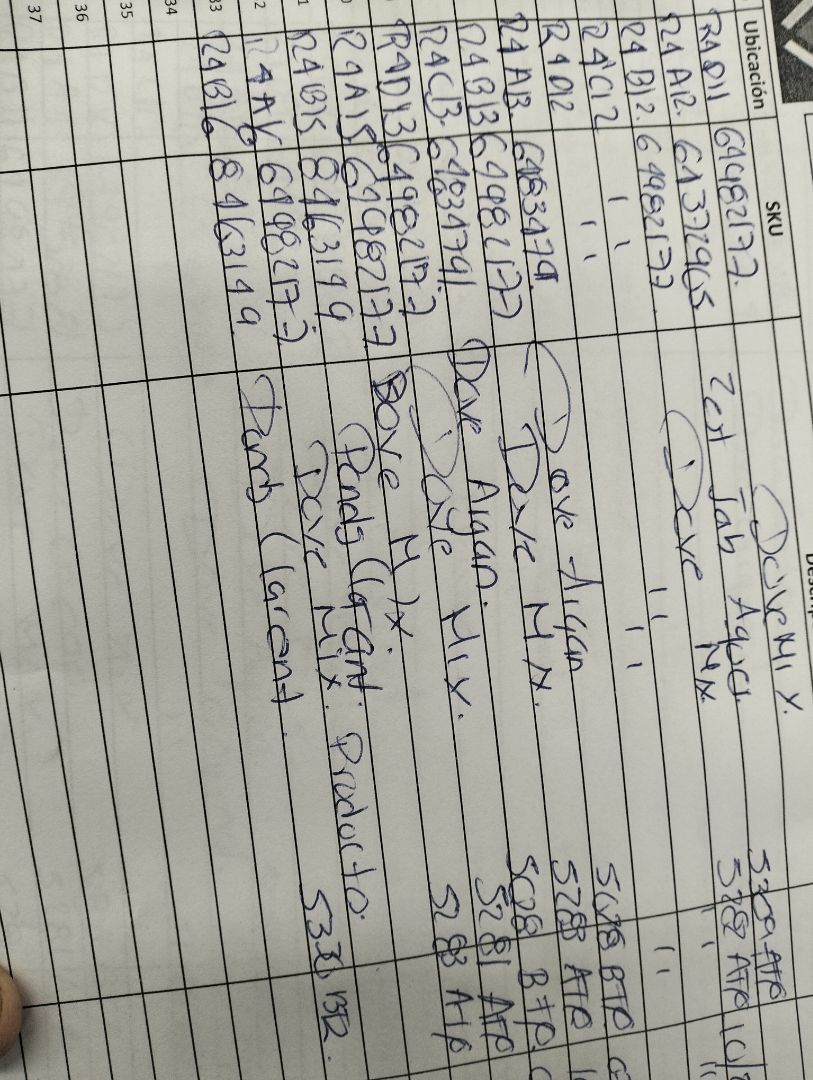 Ubicación SKU
R4D11 61982177. Dove Mix. 5309 ATP
R4A12. 61372965 Zest Jab Aqua. 5282 ATP 10/
R4B12. 61982177 Dove Mx " "
R4C12 " " " " " "
R4D12 " " " " 5028 BTP.
R4A13. 6183479. Dove Argan 5283 ATP
R4B13 61982177 Dove Mx. 5028 BTP.
R4C13. 61834791. Dove Argan. 5281 ATP
R4D13 61982177 Dove Mix. 5283 ATP
R4A15 61982177 Dove Mix.
R4B15 8463199 Ponds Clarant. Producto.
R4A16 61982177 Dove Mix. 5330 BTR.
33 R4B16 8463199 Ponds Clarent.
34
35
36
37